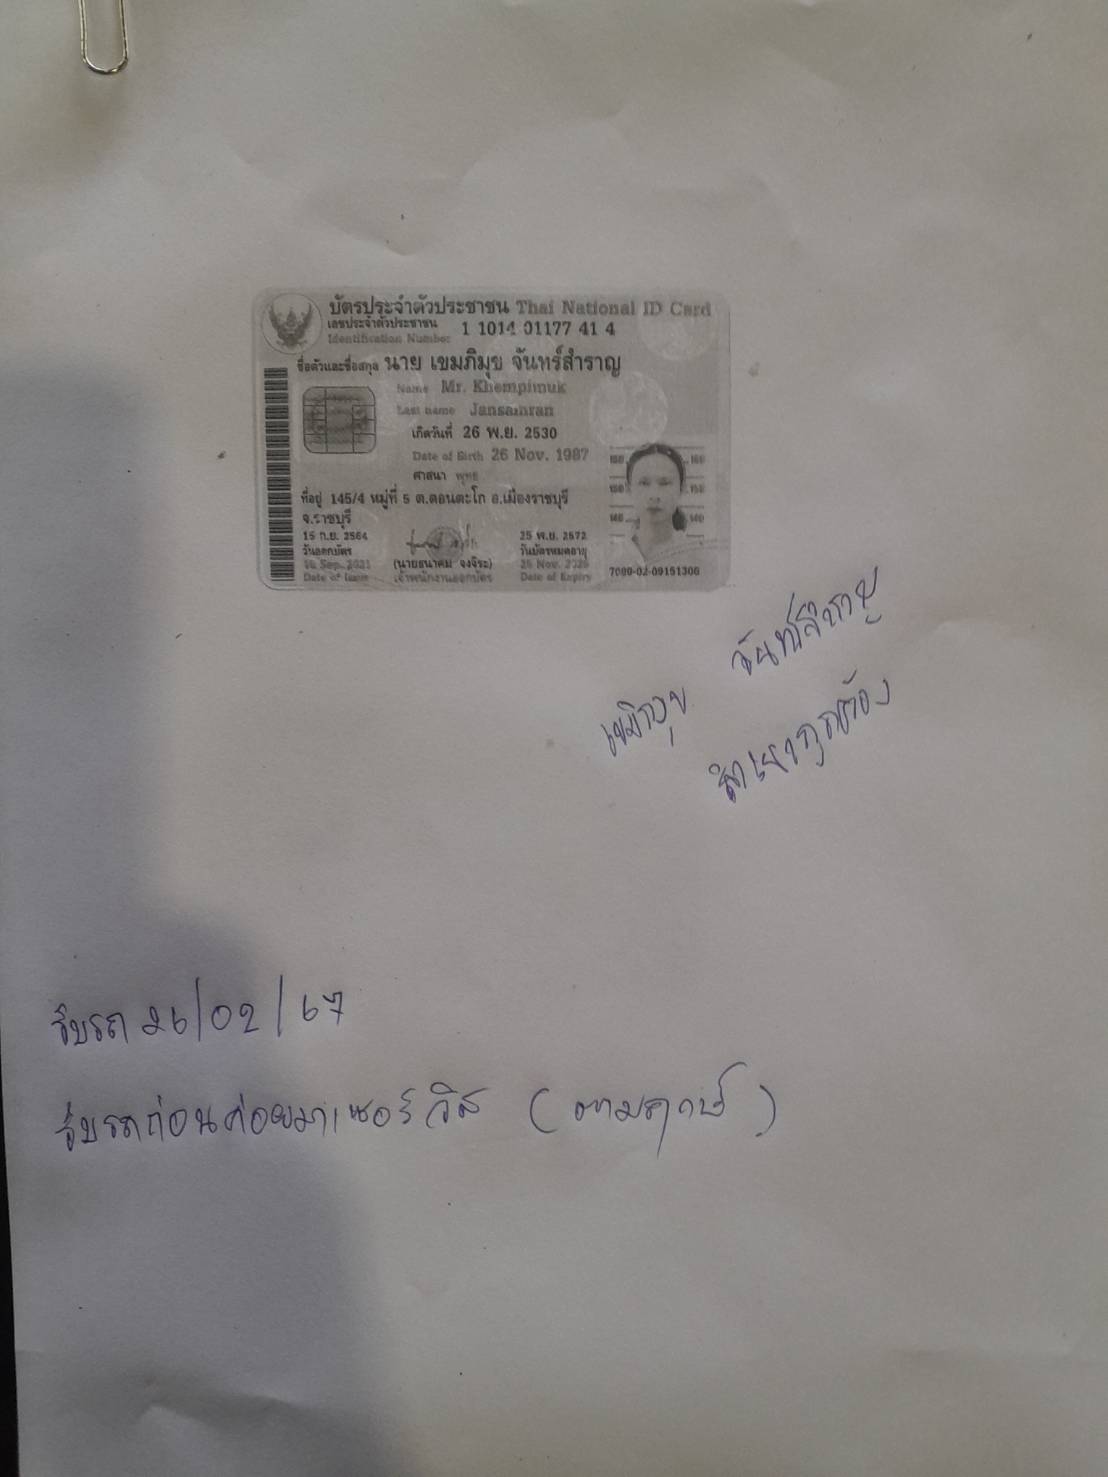 บัตรประจำตัวประชาชน Thai National ID Card
เลขประจำตัวประชาชน 1 1014 01177 41 4
Identification Number
ชื่อตัวและชื่อสกุล นาย เขมภิมุข จันทร์สำราญ
Name Mr. Khempimuk
Last name Jansamran
เกิดวันที่ 26 พ.ย. 2530
Date of Birth 26 Nov. 1987
ศาสนา พุทธ
ที่อยู่ 145/4 หมู่ที่ 5 ต.ดอนตะโก อ.เมืองราชบุรี
จ.ราชบุรี
160 160
150 150
140 140
15 ก.ย. 2564
วันออกบัตร
15 Sep. 2021
Date of Issue
(นายธนาคม จงจิระ)
เจ้าพนักงานออกบัตร
25 พ.ย. 2572
วันบัตรหมดอายุ
25 Nov. 2029
Date of Expiry
7099-02-09151306
เขมภิมุข จันทร์สำราญ
สำเนาถูกต้อง
รับรถ 26/02/67
รับรถก่อนค่อยมาเซอร์วิส (ตามฤกษ์)